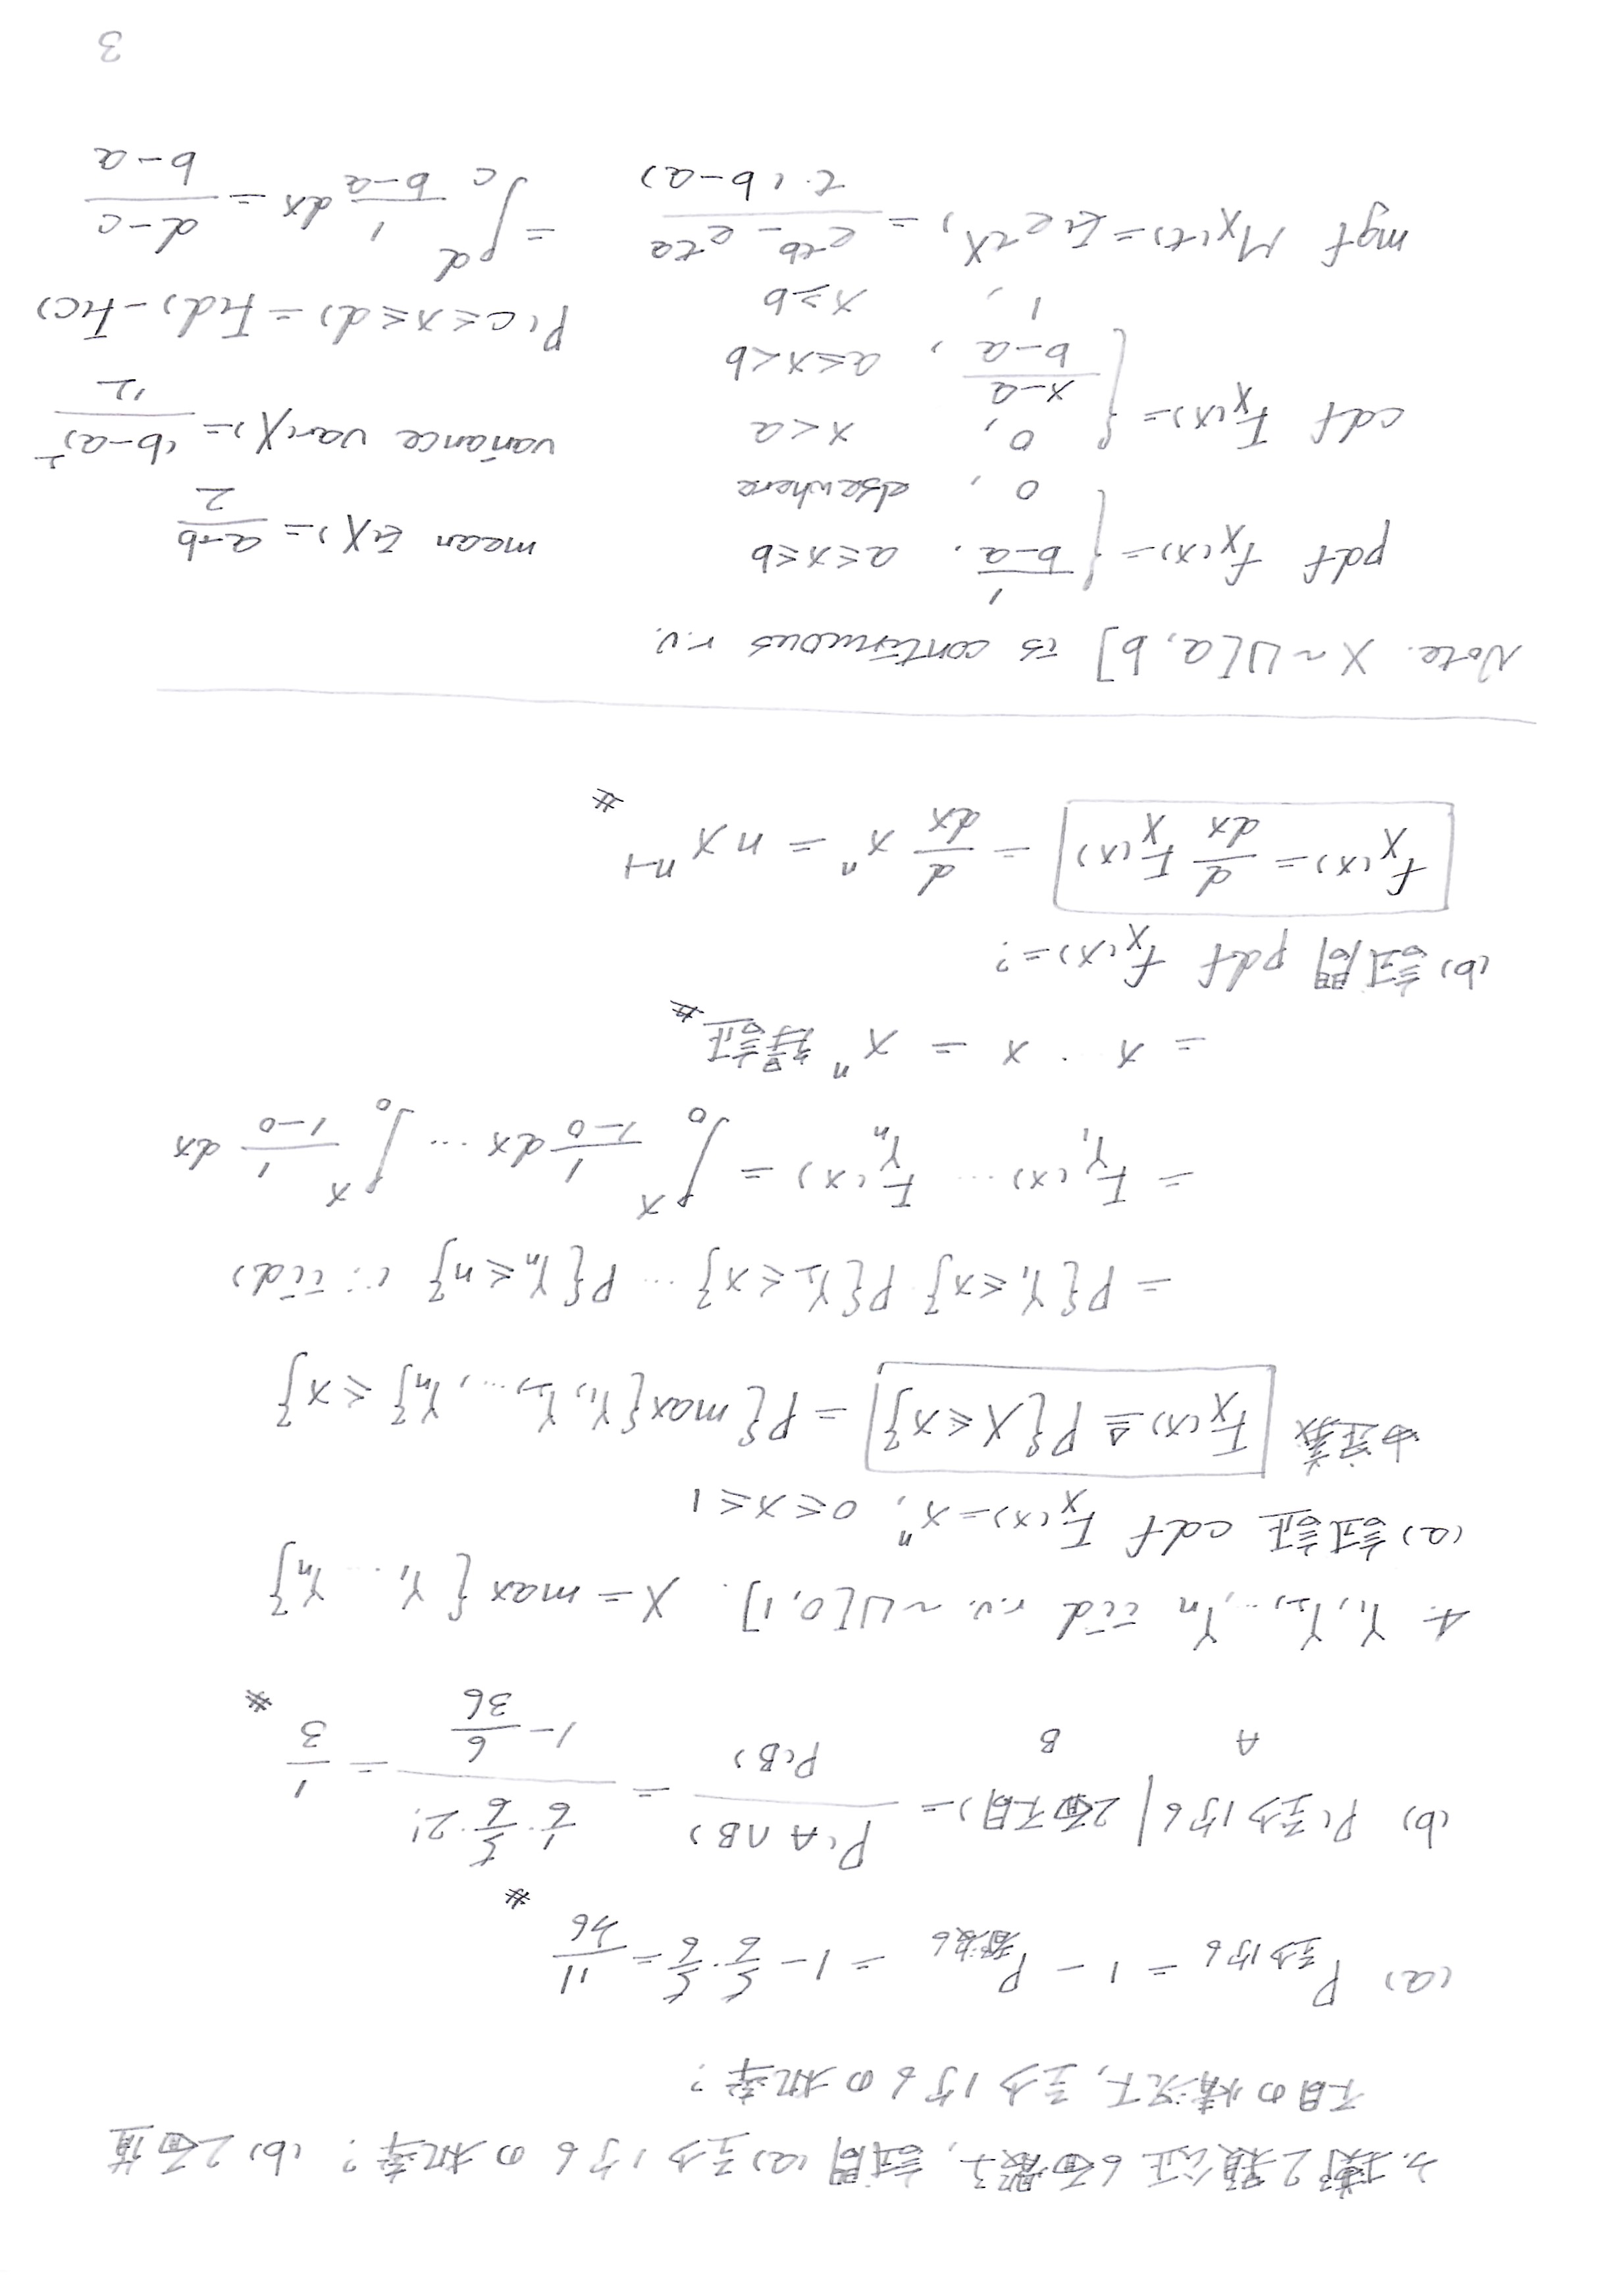 3. 擲2顆公正6面骰子, 試問 (a) 至少1个6の机率? (b) 2面值
不同の情況下, 至少1个6の机率?
(a) P至少1个6 = 1 - P都沒6 = 1 - 5/6 · 5/6 = 11/36 #
(b) P(至少1个6 | 2面不同) = P(A∩B) / P(B) = (1/6 · 5/6 · 2!) / (1 - 6/36) = 1/3 #
A B
4. Y₁, Y₂, ..., Yn iid r.v. ~ U[0, 1]. X = max{Y₁ ... Yn}
(a) 試証 cdf F_X(x) = xⁿ, 0 ≤ x ≤ 1
由定義 F_X(x) ≜ P{X ≤ x} = P{max{Y₁, Y₂, ..., Yn} ≤ x}
= P{Y₁ ≤ x} P{Y₂ ≤ x} ... P{Yn ≤ n} (∵ iid)
= F_Y₁(x) ... F_Yn(x) = ∫₀ˣ 1/(1-0) dx ... ∫₀ˣ 1/(1-0) dx
= x ·· x = xⁿ 得証 #
(b) 試問 pdf f_X(x) = ?
f_X(x) = d/dx F_X(x) = d/dx xⁿ = n xⁿ⁻¹ #
Note. X ~ U[a, b] is continuous r.v.
pdf f_X(x) = { 1/(b-a), a ≤ x ≤ b
0, elsewhere
mean E(X) = (a+b)/2
cdf F_X(x) = { 0, x < a
(x-a)/(b-a), a ≤ x < b
1, x ≥ b
variance var(X) = (b-a)²/12
P(c ≤ x ≤ d) = F(d) - F(c)
= ∫_c^d 1/(b-a) dx = (d-c)/(b-a)
mgf M_X(t) = E(e^{tX}) = (e^{tb} - e^{ta}) / (t·(b-a))
3